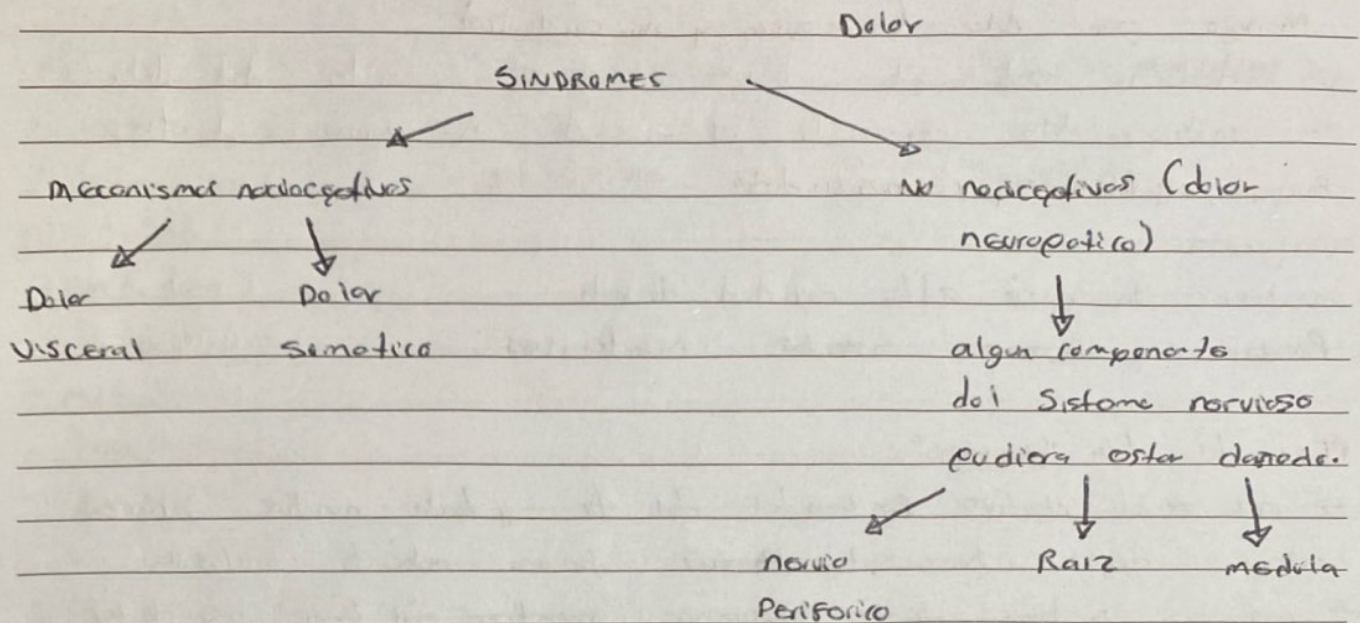 Dolor
SINDROMES
Mecanismos nociceptivos
No nociceptivos (dolor
neuropatico)
Dolor
visceral
Dolor
somatico
algun componente
del sistema nervioso
pudiera estar dañado.
nervio
Periferico
Raiz
medula